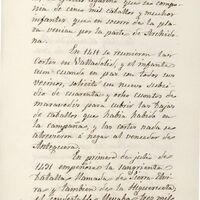 nia de cien mil caballos y muchos
infantes que en socorro de la plaza
venian por la parte de Archido-
na.
En 1411 se reunieron las
Cortes en Valladolid, y el infante
aun cuando en paz con todos sus
vecinos, solicitó un nuevo subsi-
dio de cuarenta y ocho cuentos de
maravedis para cubrir las bajas
de caballos que habia habido en
la campaña, y las cortes nada se
atrevieron a negar al vencedor de
Antequera.
En primero de julio de
1431 empeñóse la sangrienta
batalla llamada de Sierra Elvi-
ra y tambien de la Higueruela,
el condestable llevaba tres mil